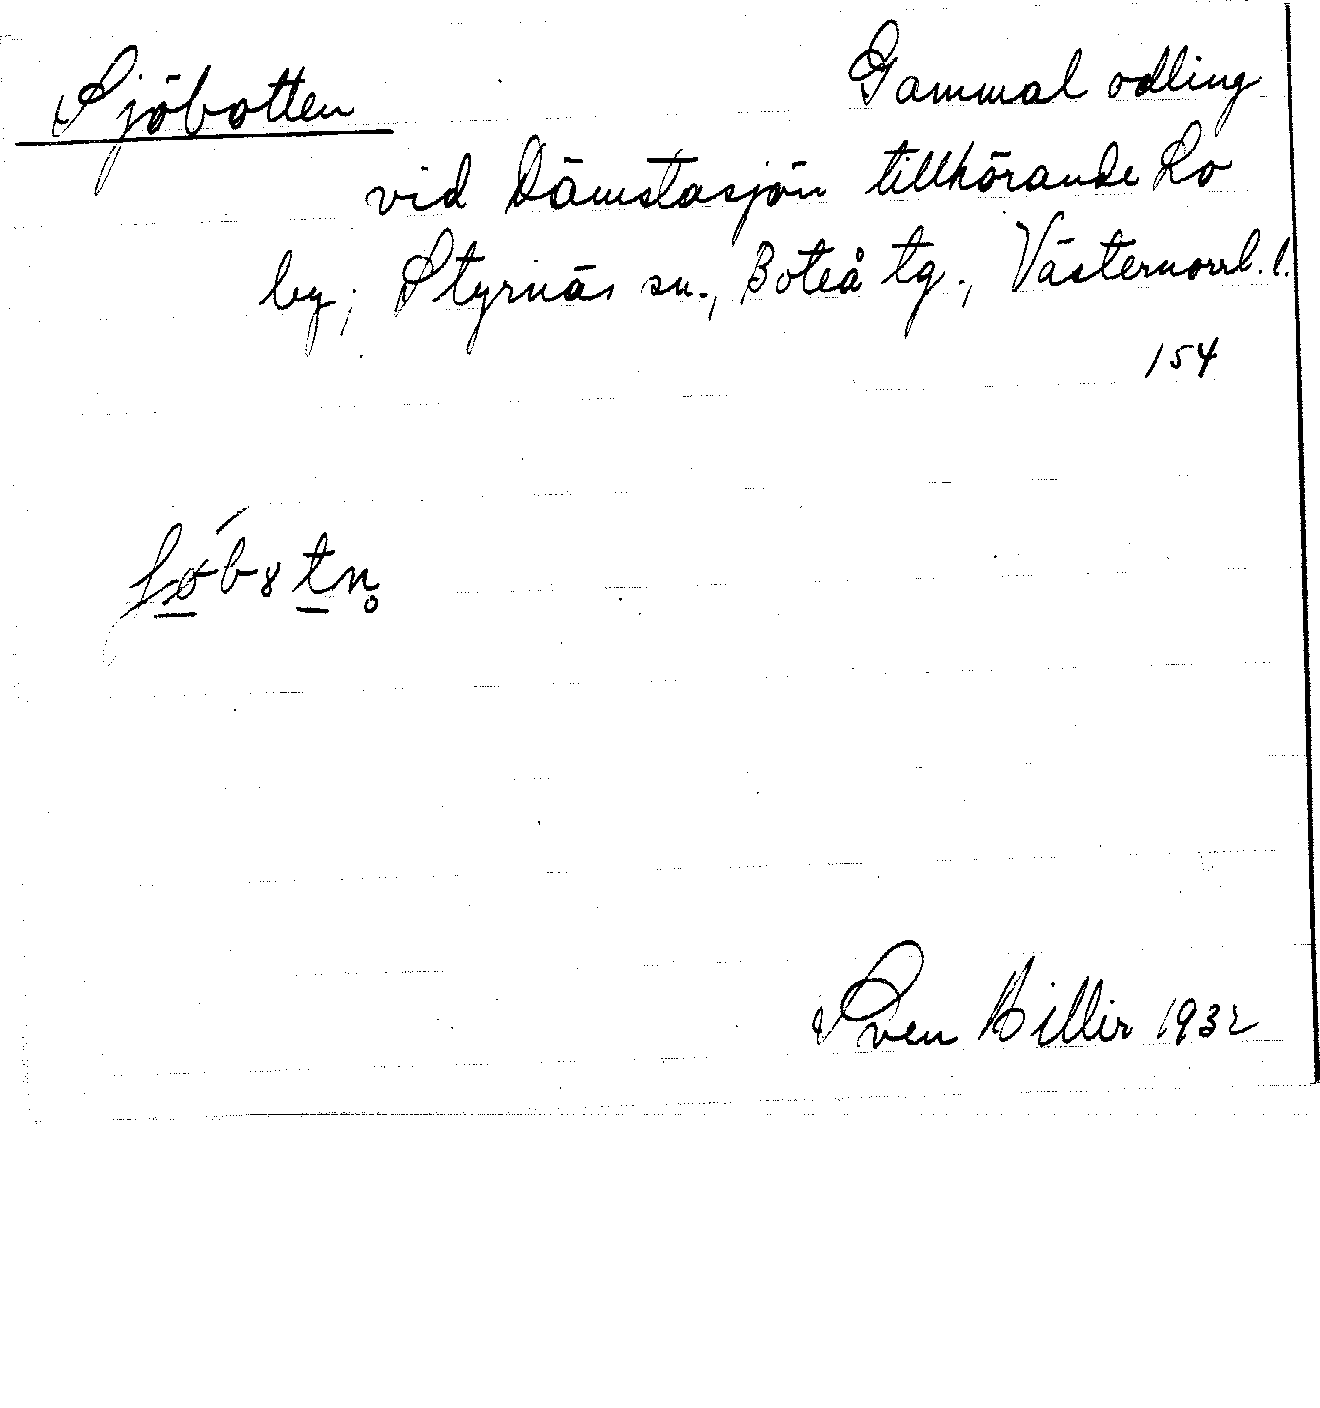 Sjöbotten Gammal odling
vid Dämstasjön tillhörande Lo
by, Styrnäs sn., Boteå tg., Västernorrl. l.
154
Sven Hillir 1932